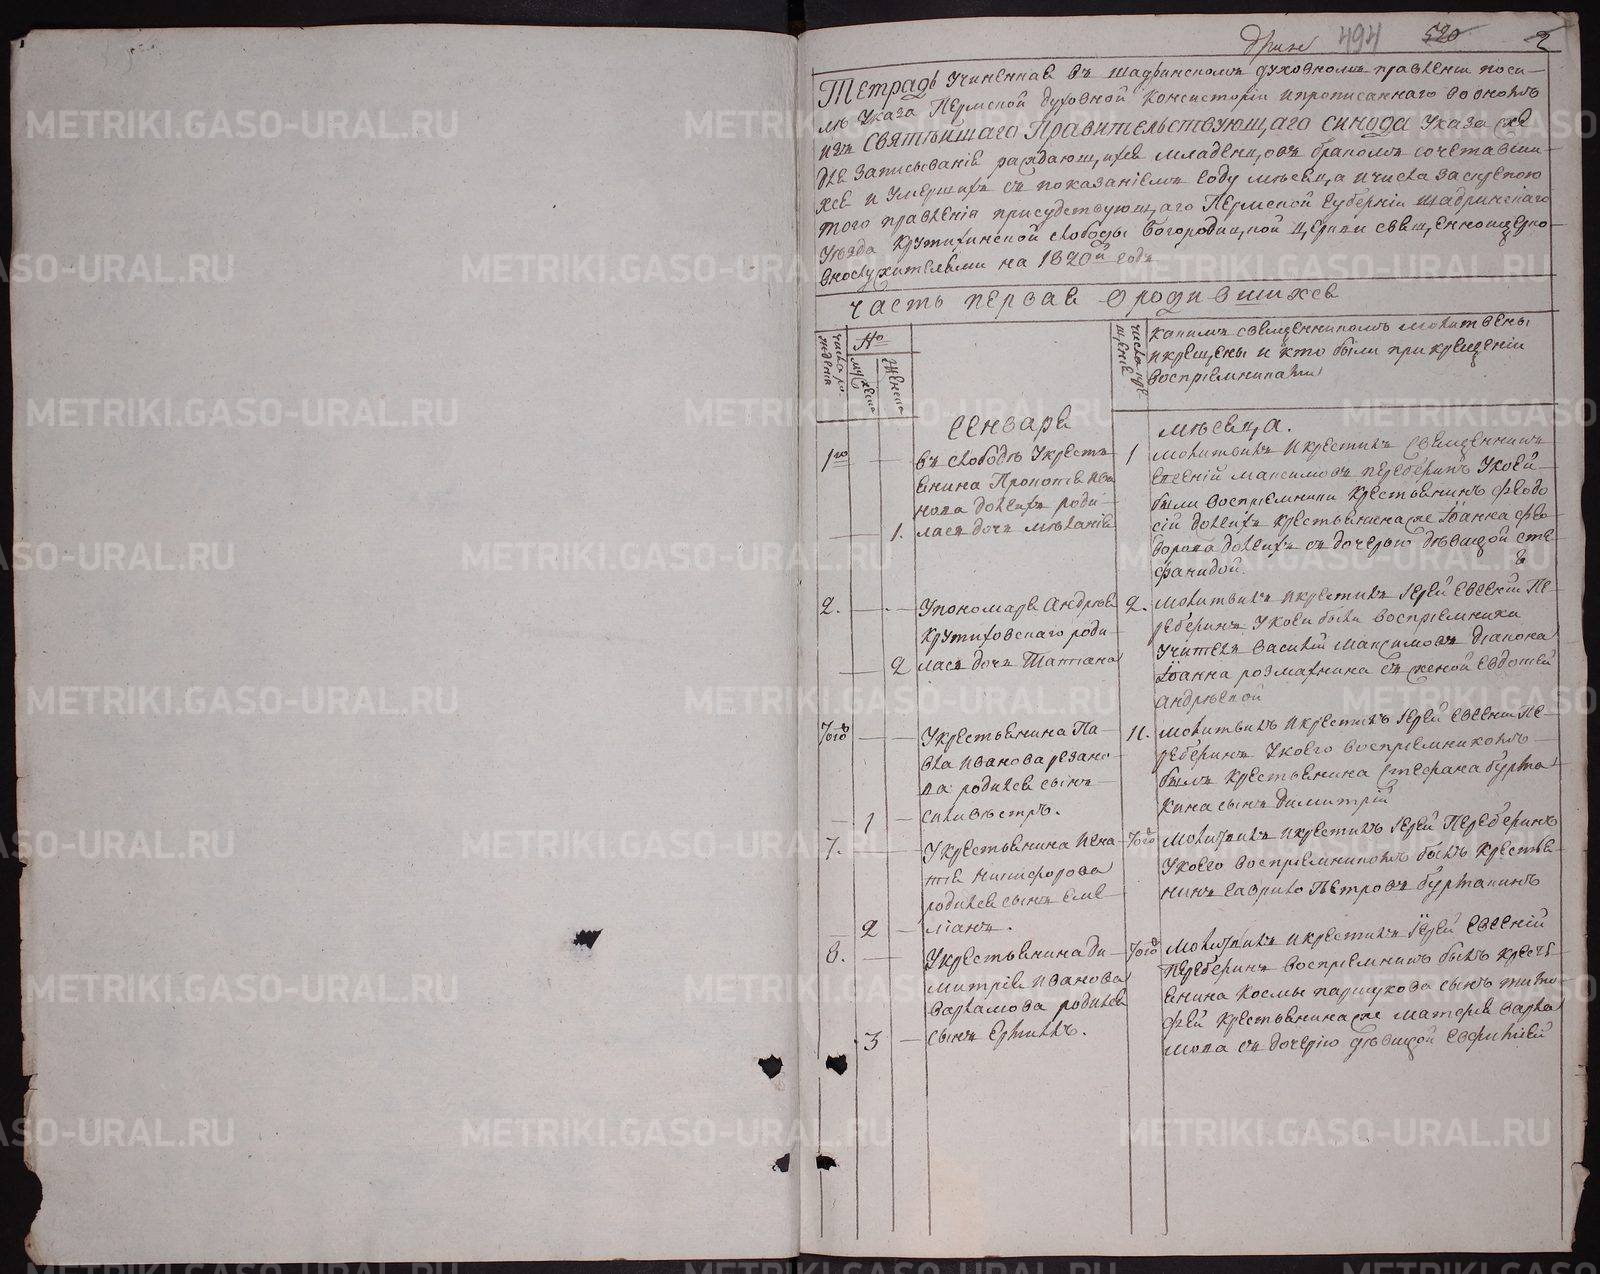 494 520 2
Тетрадь Учиненная въ шадринскомъ духовномъ правлении поси-
лѣ Указа Пермской духовной Консистории ипрописаннаго во ономъ
изъ Святѣйшаго Правительствующаго синода Указа
для записывания раждающихся младенцовъ бракомъ сочетавши-
хся и Умершихъ съ показаниемъ году мѣсяца и числа заскрепою
того правления присудствующаго Пермской губернии шадринскаго
Уезда Крутихинской слободы Богородицкой церкви священноицерко-
внослужителями на 1820й годъ
часть первая о родившихся
числа ро-
ждения
№
мужеска
женска
числа кре-
щения
каким священникомъ молитвены
икрещены и кто были при крещении
восприемниками
генваря
мѣсяца.
1го
въ слободѣ Укрестъ
янина Прокопия Ива
нова долгихъ роди-
1. лась дочь мѣлания
1 молитвилъ икрестилъ священникъ
Евгений Максимовъ переберинъ Укоей
были восприемники крестьянинъ феодо
сий долгихъ крестьянина же Иоанна фео
дорова долгихъ съ дочерью дѣвицой сте
фанидой.
2.
Упономаря Андрея
Крутиховскаго роди-
2 лась дочь Татиана
2. молитвилъ икрестилъ Иерей Евгений Пе-
реберинъ Укоеи были восприемники
Учитель Василий Максимовъ диакона
Иоанна розмахнина съ женой Евдотьей
андреевой
7ого
Укрестьянина Па-
вла иванова резано-
ва родился сынъ
1 силивестръ.
11. молитвилъ икрестилъ Иерей Евгений Пе-
реберинъ Укоего восприемникомъ
былъ крестьянина стефана бурма
кина сынъ димитрий
7.
Укрестьянина игна-
тия никифорова
родился сынъ Еме
2 лианъ.
7ого молитвилъ икрестилъ Иерей Переберинъ
Укоего восприемникомъ былъ крестья-
нинъ гаврило Петровъ бурмакинъ
8.
Укрестьянина ди-
митрия иванова
варламова родился
3 сынъ Ермилъ.
7ого молитвилъ икрестилъ Иерей Евгений
переберинъ восприемникъ былъ крестъ
янина космы паршукова сынъ тимо-
фей крестьянина же матфия варла
мова съ дочерию дѣвицой Евфимией
METRIKI.GASO-URAL.RU